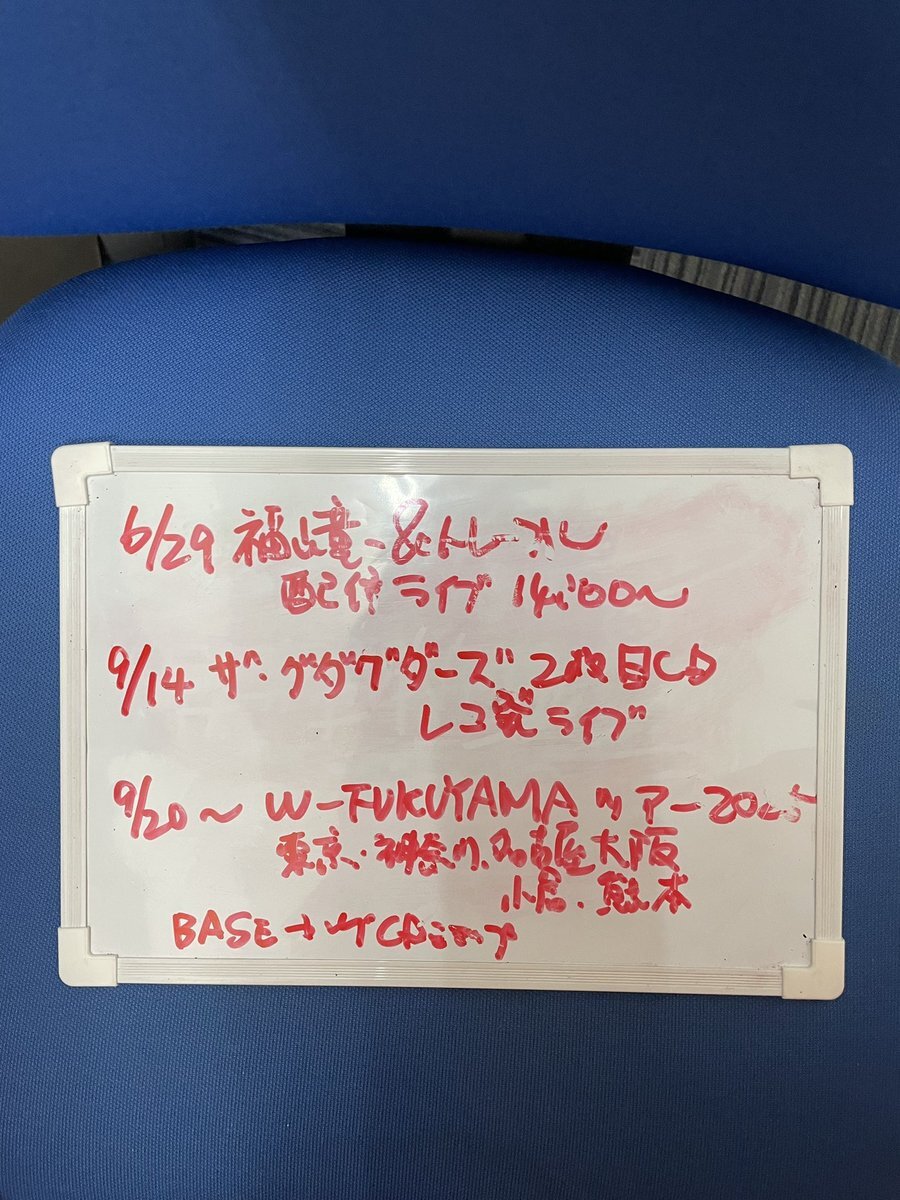 6/29 福山竜一&トレーメン
配信ライブ 14:00〜
9/14 ザ・グダグダーズ 2枚目CD
レコ発ライブ
9/20〜 W-FUKUYAMA ツアー2025
東京・神奈川・名古屋大阪
小倉・熊本
BASE ネット CDショップ